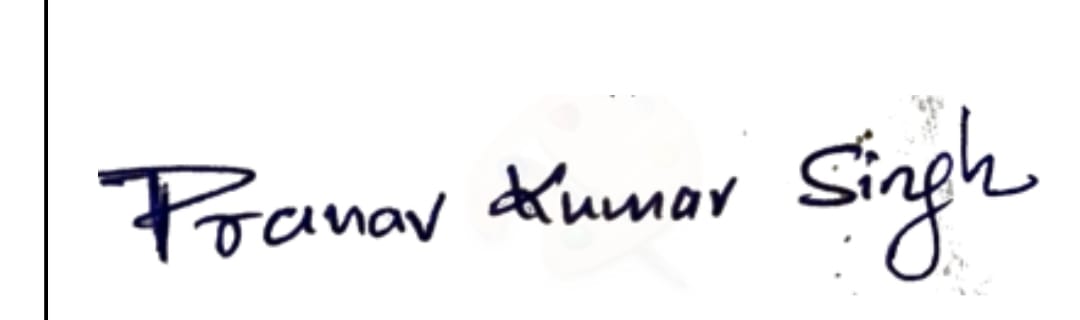 Pranav Kumar Singh